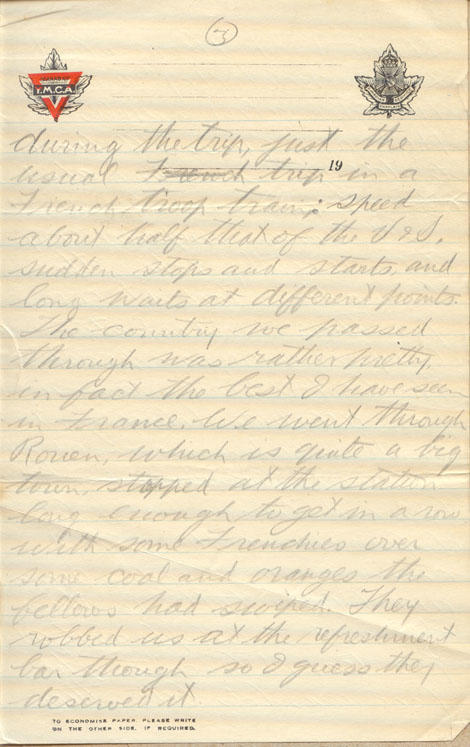 (3)
Y.M.C.A.
during the trip, just the
19
usual French trip in a
French troop train; speed
about half that of the V & S,
sudden stops and starts, and
long waits at different points.
The country we passed
through was rather pretty,
in fact the best I have seen
in France. We went through
Rouen, which is quite a big
town, stopped at the station
long enough to get in a row
with some Frenchies over
some coal and oranges the
fellows had swiped. They
robbed us at the refreshment
bar though so I guess they
deserved it.
TO ECONOMISE PAPER, PLEASE WRITE
ON THE OTHER SIDE, IF REQUIRED.